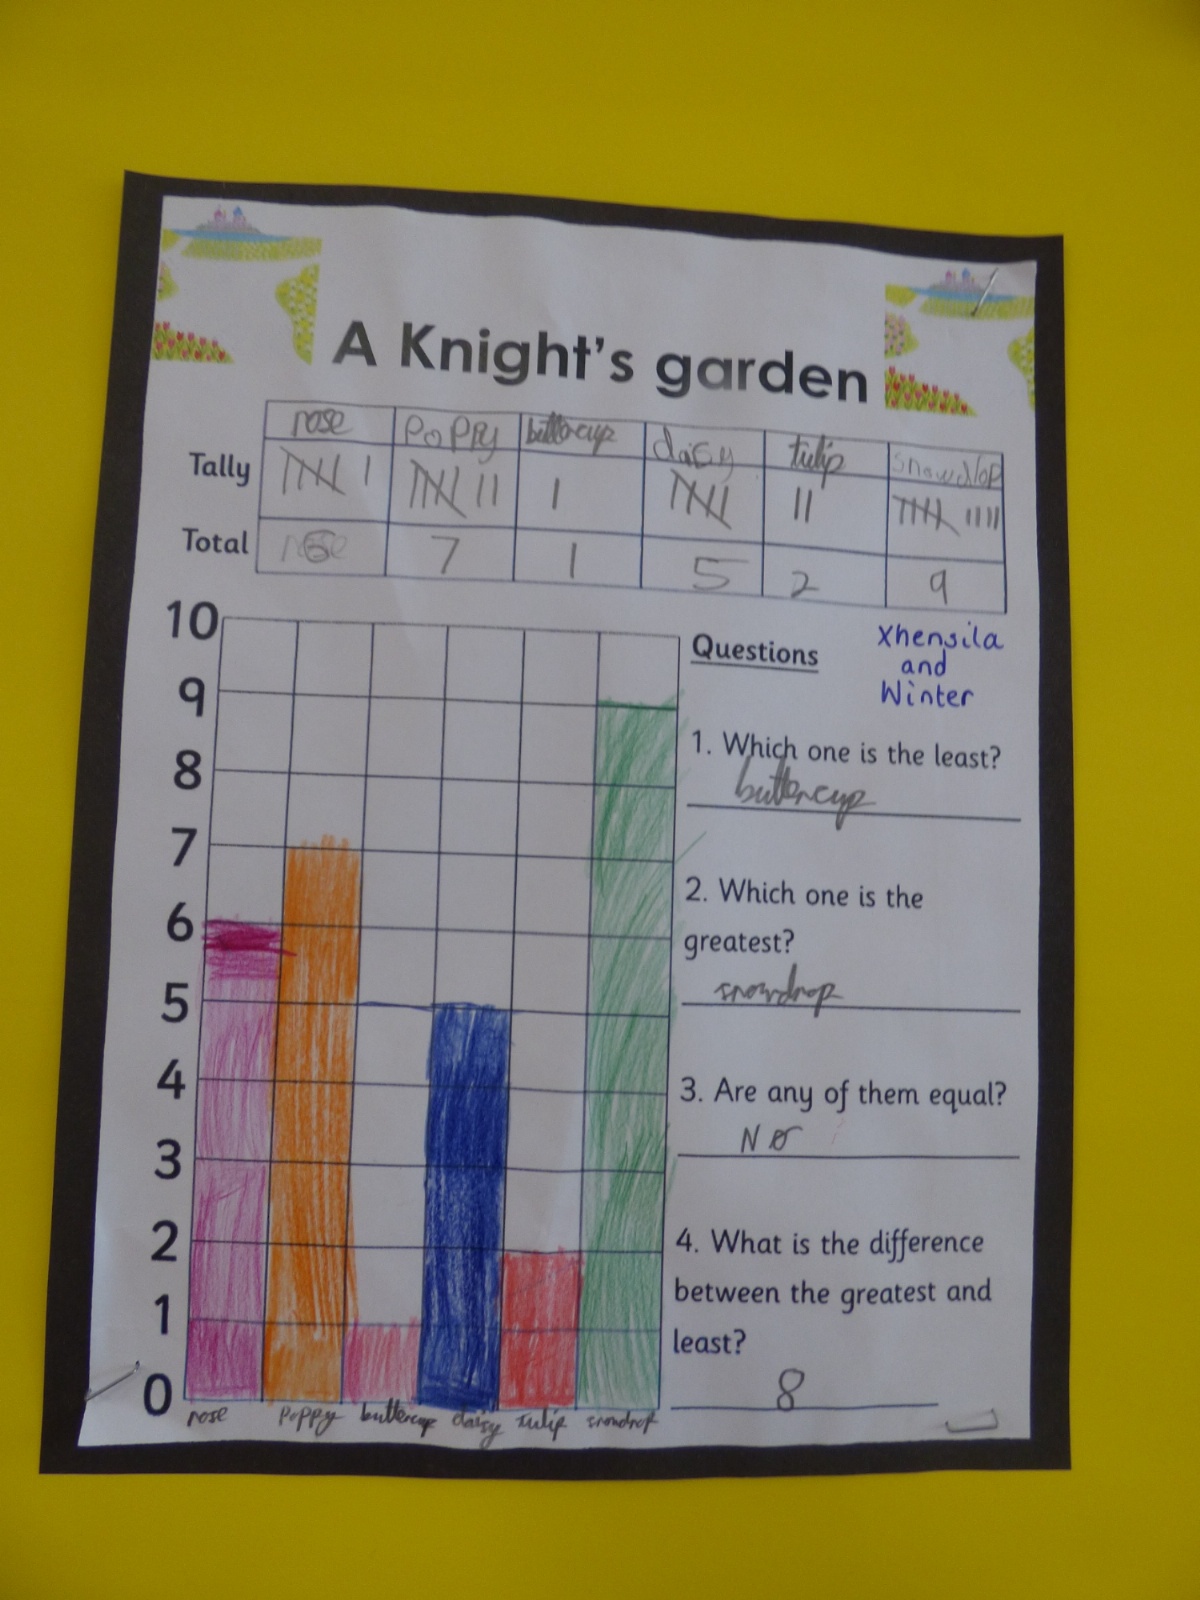 A Knight's garden
rose poppy buttercup daisy tulip snowdrop
Tally
Total 6 7 1 5 2 9
10
9
8
7
6
5
4
3
2
1
0
rose poppy buttercup daisy tulip snowdrop
Questions
Xhensila
and
Winter
1. Which one is the least?
buttercup
2. Which one is the
greatest?
snowdrop
3. Are any of them equal?
No
4. What is the difference
between the greatest and
least?
8